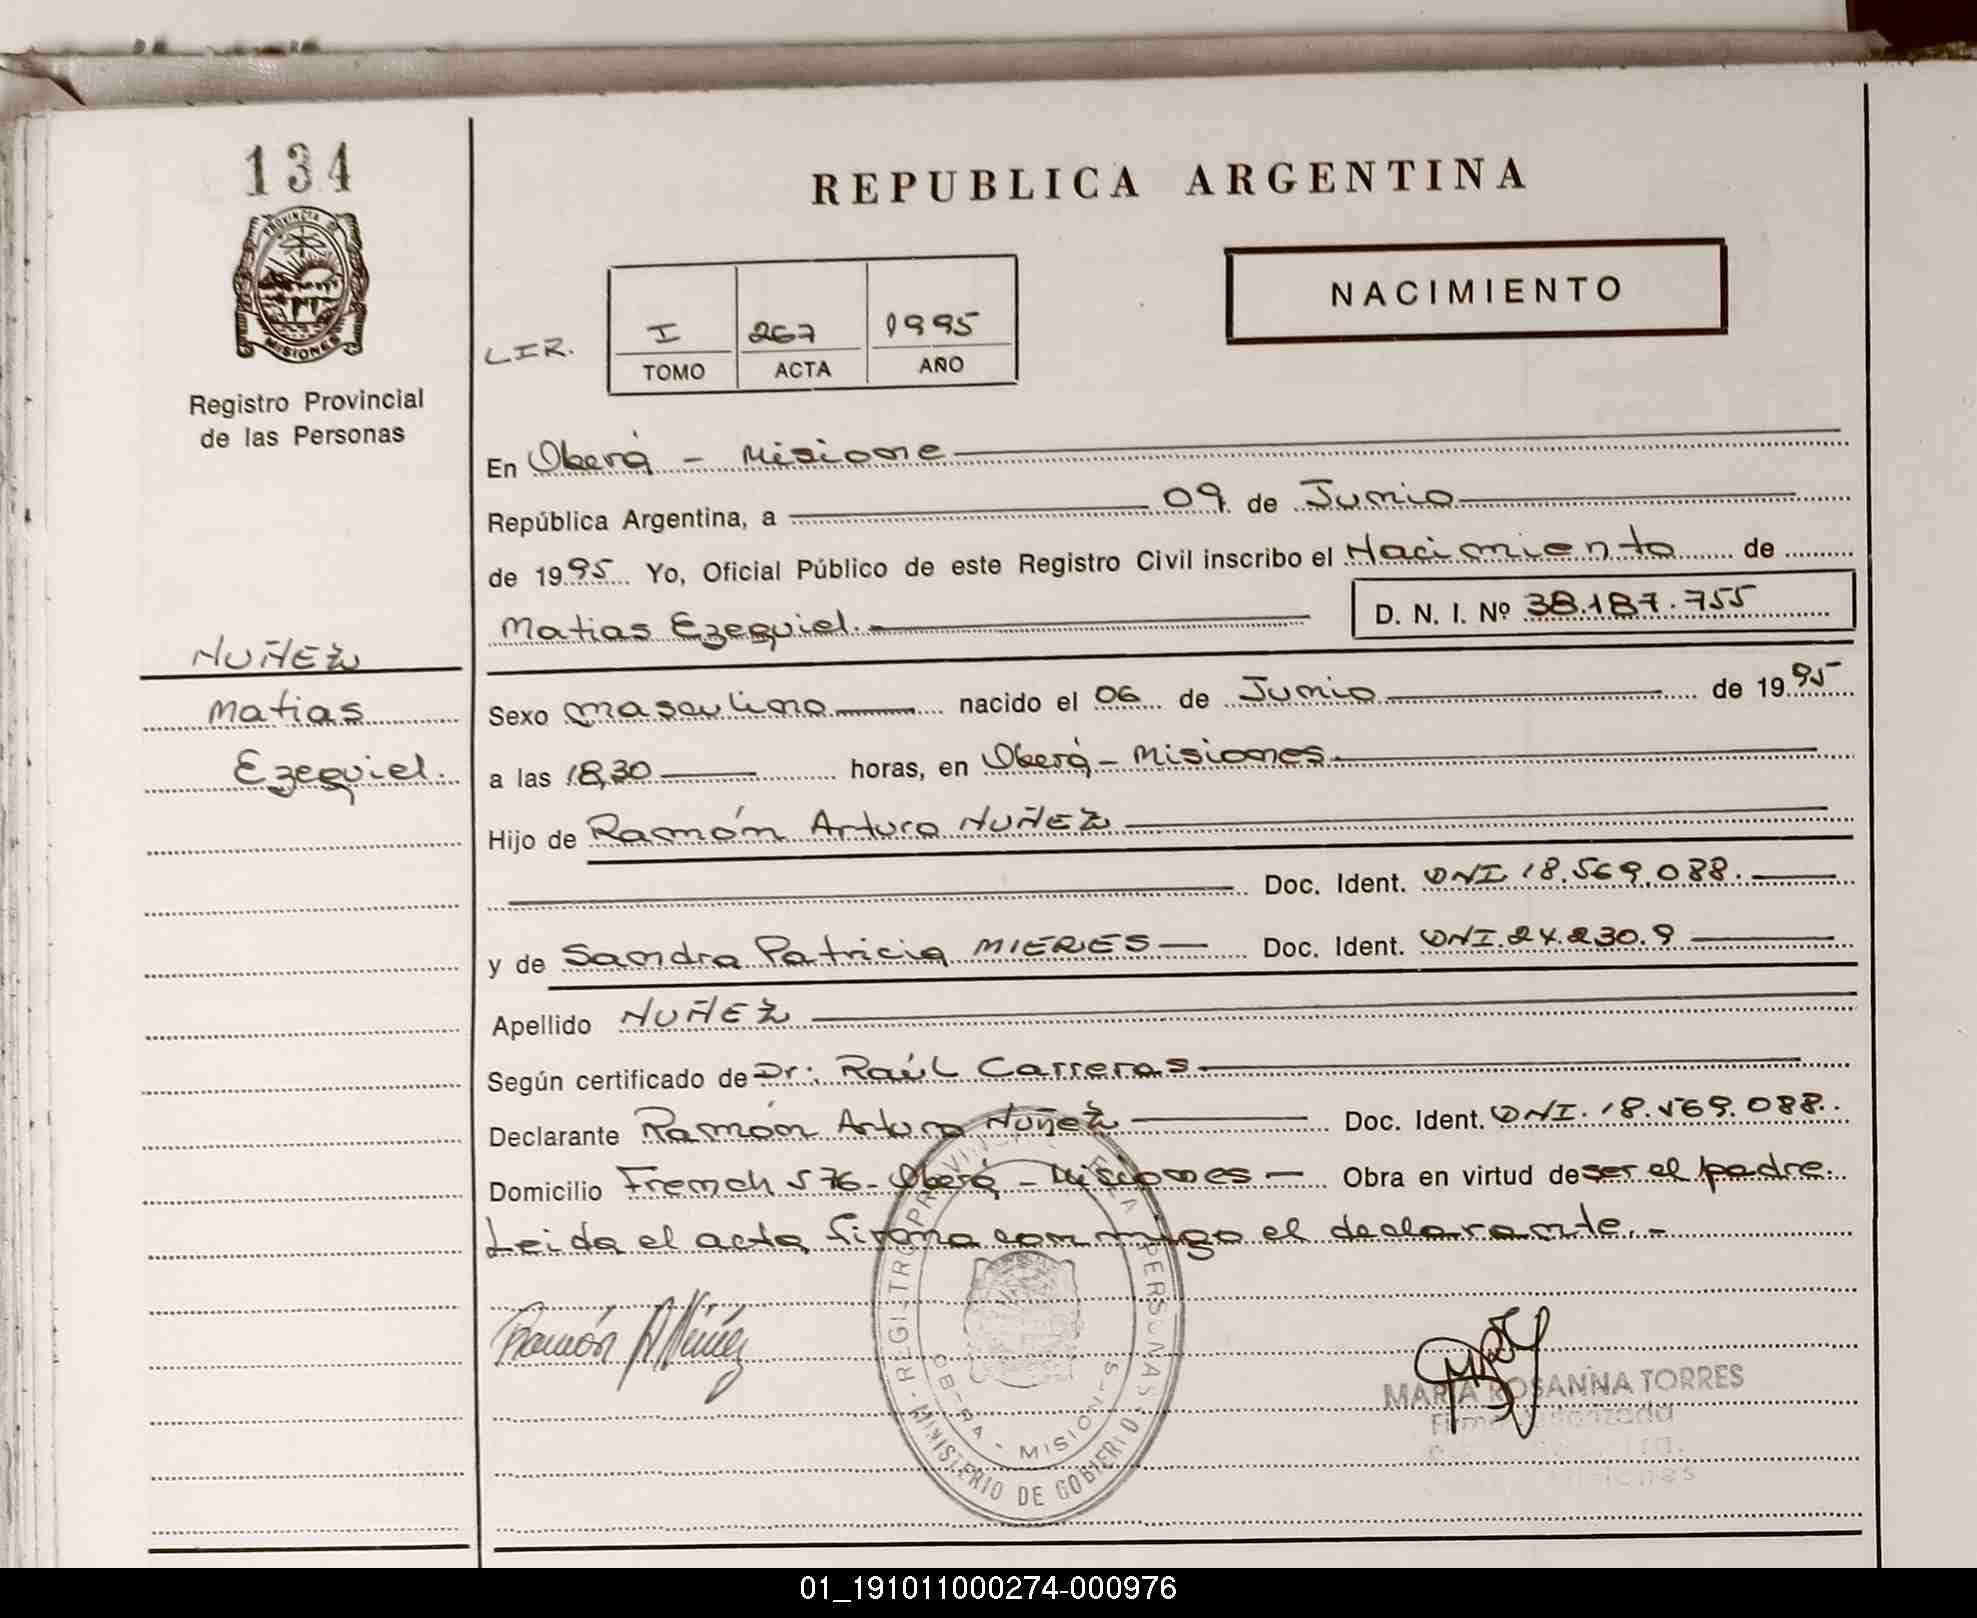 134
PROVINCIA DE
MISIONES
Registro Provincial
de las Personas
REPUBLICA ARGENTINA
NACIMIENTO
LIR.
I 267 1995
TOMO ACTA AÑO
En Oberá - Misione
República Argentina, a 09 de Junio
de 1995 Yo, Oficial Público de este Registro Civil inscribo el Nacimiento de
Matias Ezequiel.- D. N. I. Nº 38.187.755
NUÑEZ
Matias
Ezequiel.
Sexo masculino nacido el 06 de Junio de 1995
a las 18,30 horas, en Oberá - Misiones
Hijo de Ramón Arturo NUÑEZ
Doc. Ident. DNI 18.569.088.
y de Sandra Patricia MIERES Doc. Ident. DNI. 24.230.9
Apellido NUÑEZ
Según certificado de Dr: Raúl Carreras
Declarante Ramón Arturo Nuñez Doc. Ident. DNI. 18.569.088.
Domicilio French 576 - Oberá - Misiones - Obra en virtud de ser el padre.
Leida el acta, firma conmigo el declarante.-
Ramón A Núñez
REGISTRO PROVINCIAL DE LAS PERSONAS
OBERA - MISIONES
MINISTERIO DE GOBIERNO
MARIA ROSANNA TORRES
Firma Autorizada
01_191011000274-000976